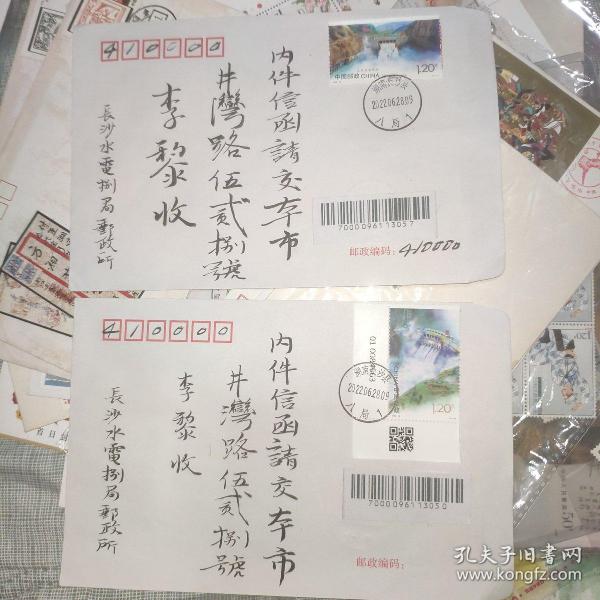 410000
内件信函請交本市
井灣路伍貳捌號
李黎收
長沙水電捌局郵政所
中国邮政 CHINA
1.20元
湖南长沙
2022.06.28.09
八局
7000096113057
邮政编码：410000
410000
内件信函請交本市
井灣路伍貳捌號
李黎收
長沙水電捌局郵政所
1.20元
湖南长沙
2022.06.28.09
八局
7000096113050
邮政编码：
孔夫子旧书网
www.kongfz.com